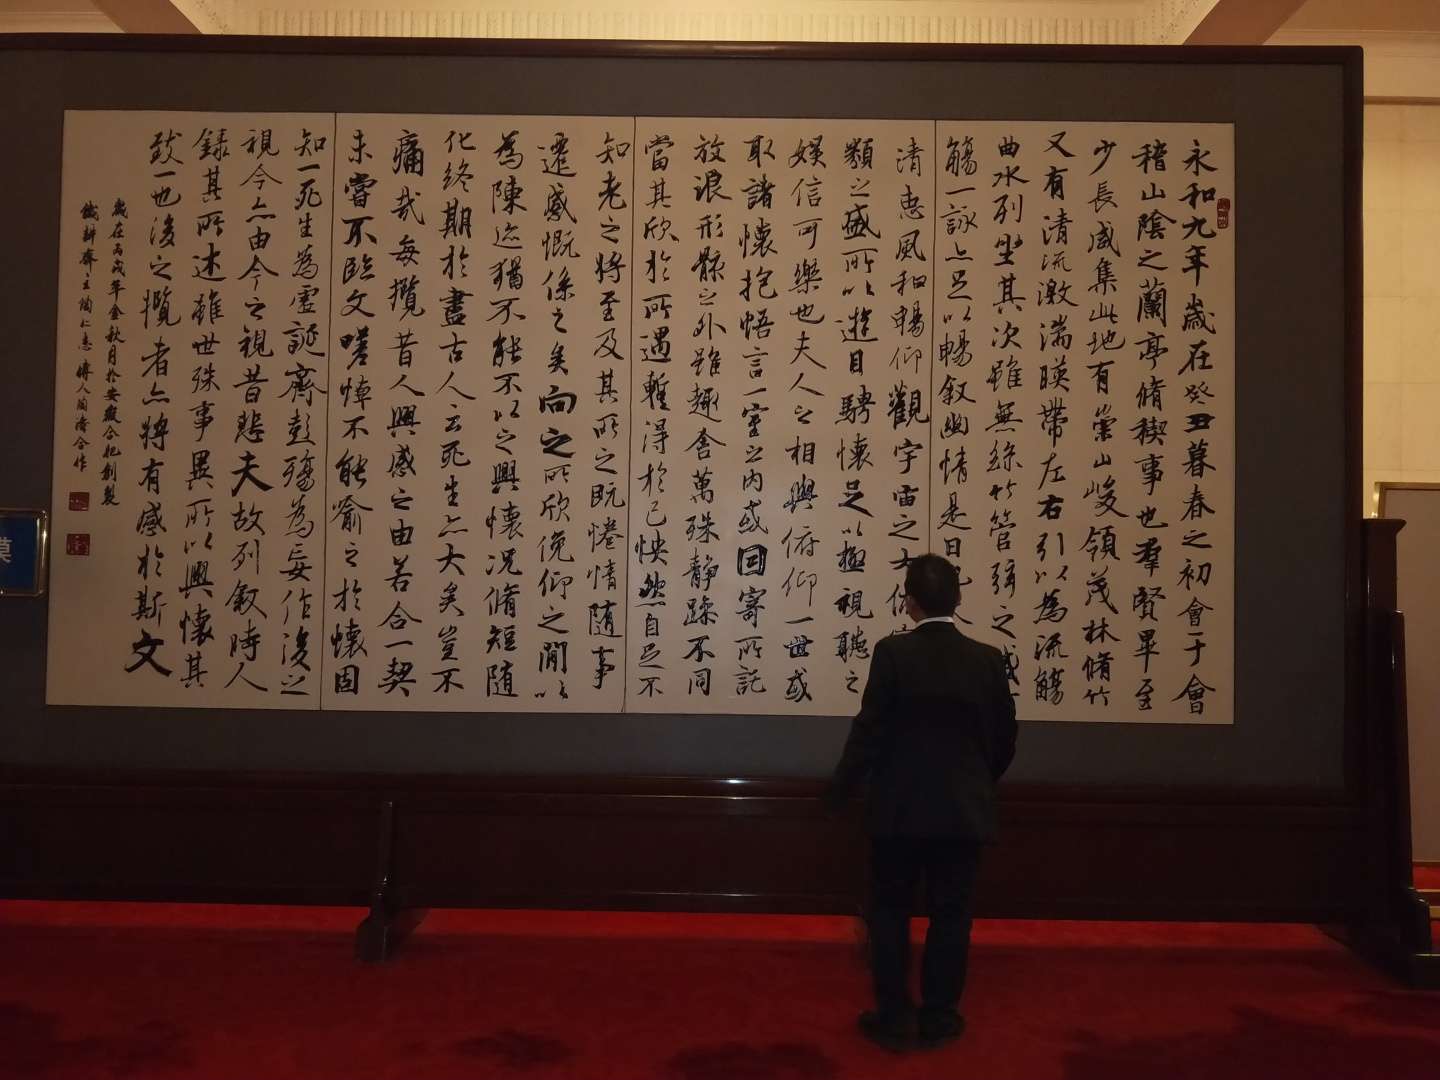 永和九年歲在癸丑暮春之初會于會
稽山陰之蘭亭脩稧事也羣賢畢至
少長咸集此地有崇山峻領茂林脩竹
又有清流激湍暎帶左右引以為流觴
曲水列坐其次雖無絲竹管弦之盛
觴一詠亦足以暢叙幽情是日也
清惠風和暢仰觀宇宙之大俯
類之盛所以遊目騁懷足以極視聽之
娛信可樂也夫人之相與俯仰一世或
取諸懷抱悟言一室之內或因寄所託
放浪形骸之外雖趣舍萬殊靜躁不同
當其欣於所遇暫得於己怏然自足不
知老之將至及其所之既惓情隨事
遷感慨係之矣向之所欣俛仰之閒以
為陳迹猶不能不以之興懷況脩短隨
化終期於盡古人云死生亦大矣豈不
痛哉每攬昔人興感之由若合一契
未嘗不臨文嗟悼不能喻之於懷固
知一死生為虛誕齊彭殤為妄作後之
視今亦由今之視昔悲夫故列敘時人
錄其所述雖世殊事異所以興懷其
致一也後之攬者亦將有感於斯文
歲在丙戌年金秋月於安徽合肥創製
鐵耕齋主陶仁志 傳人陶濤合作